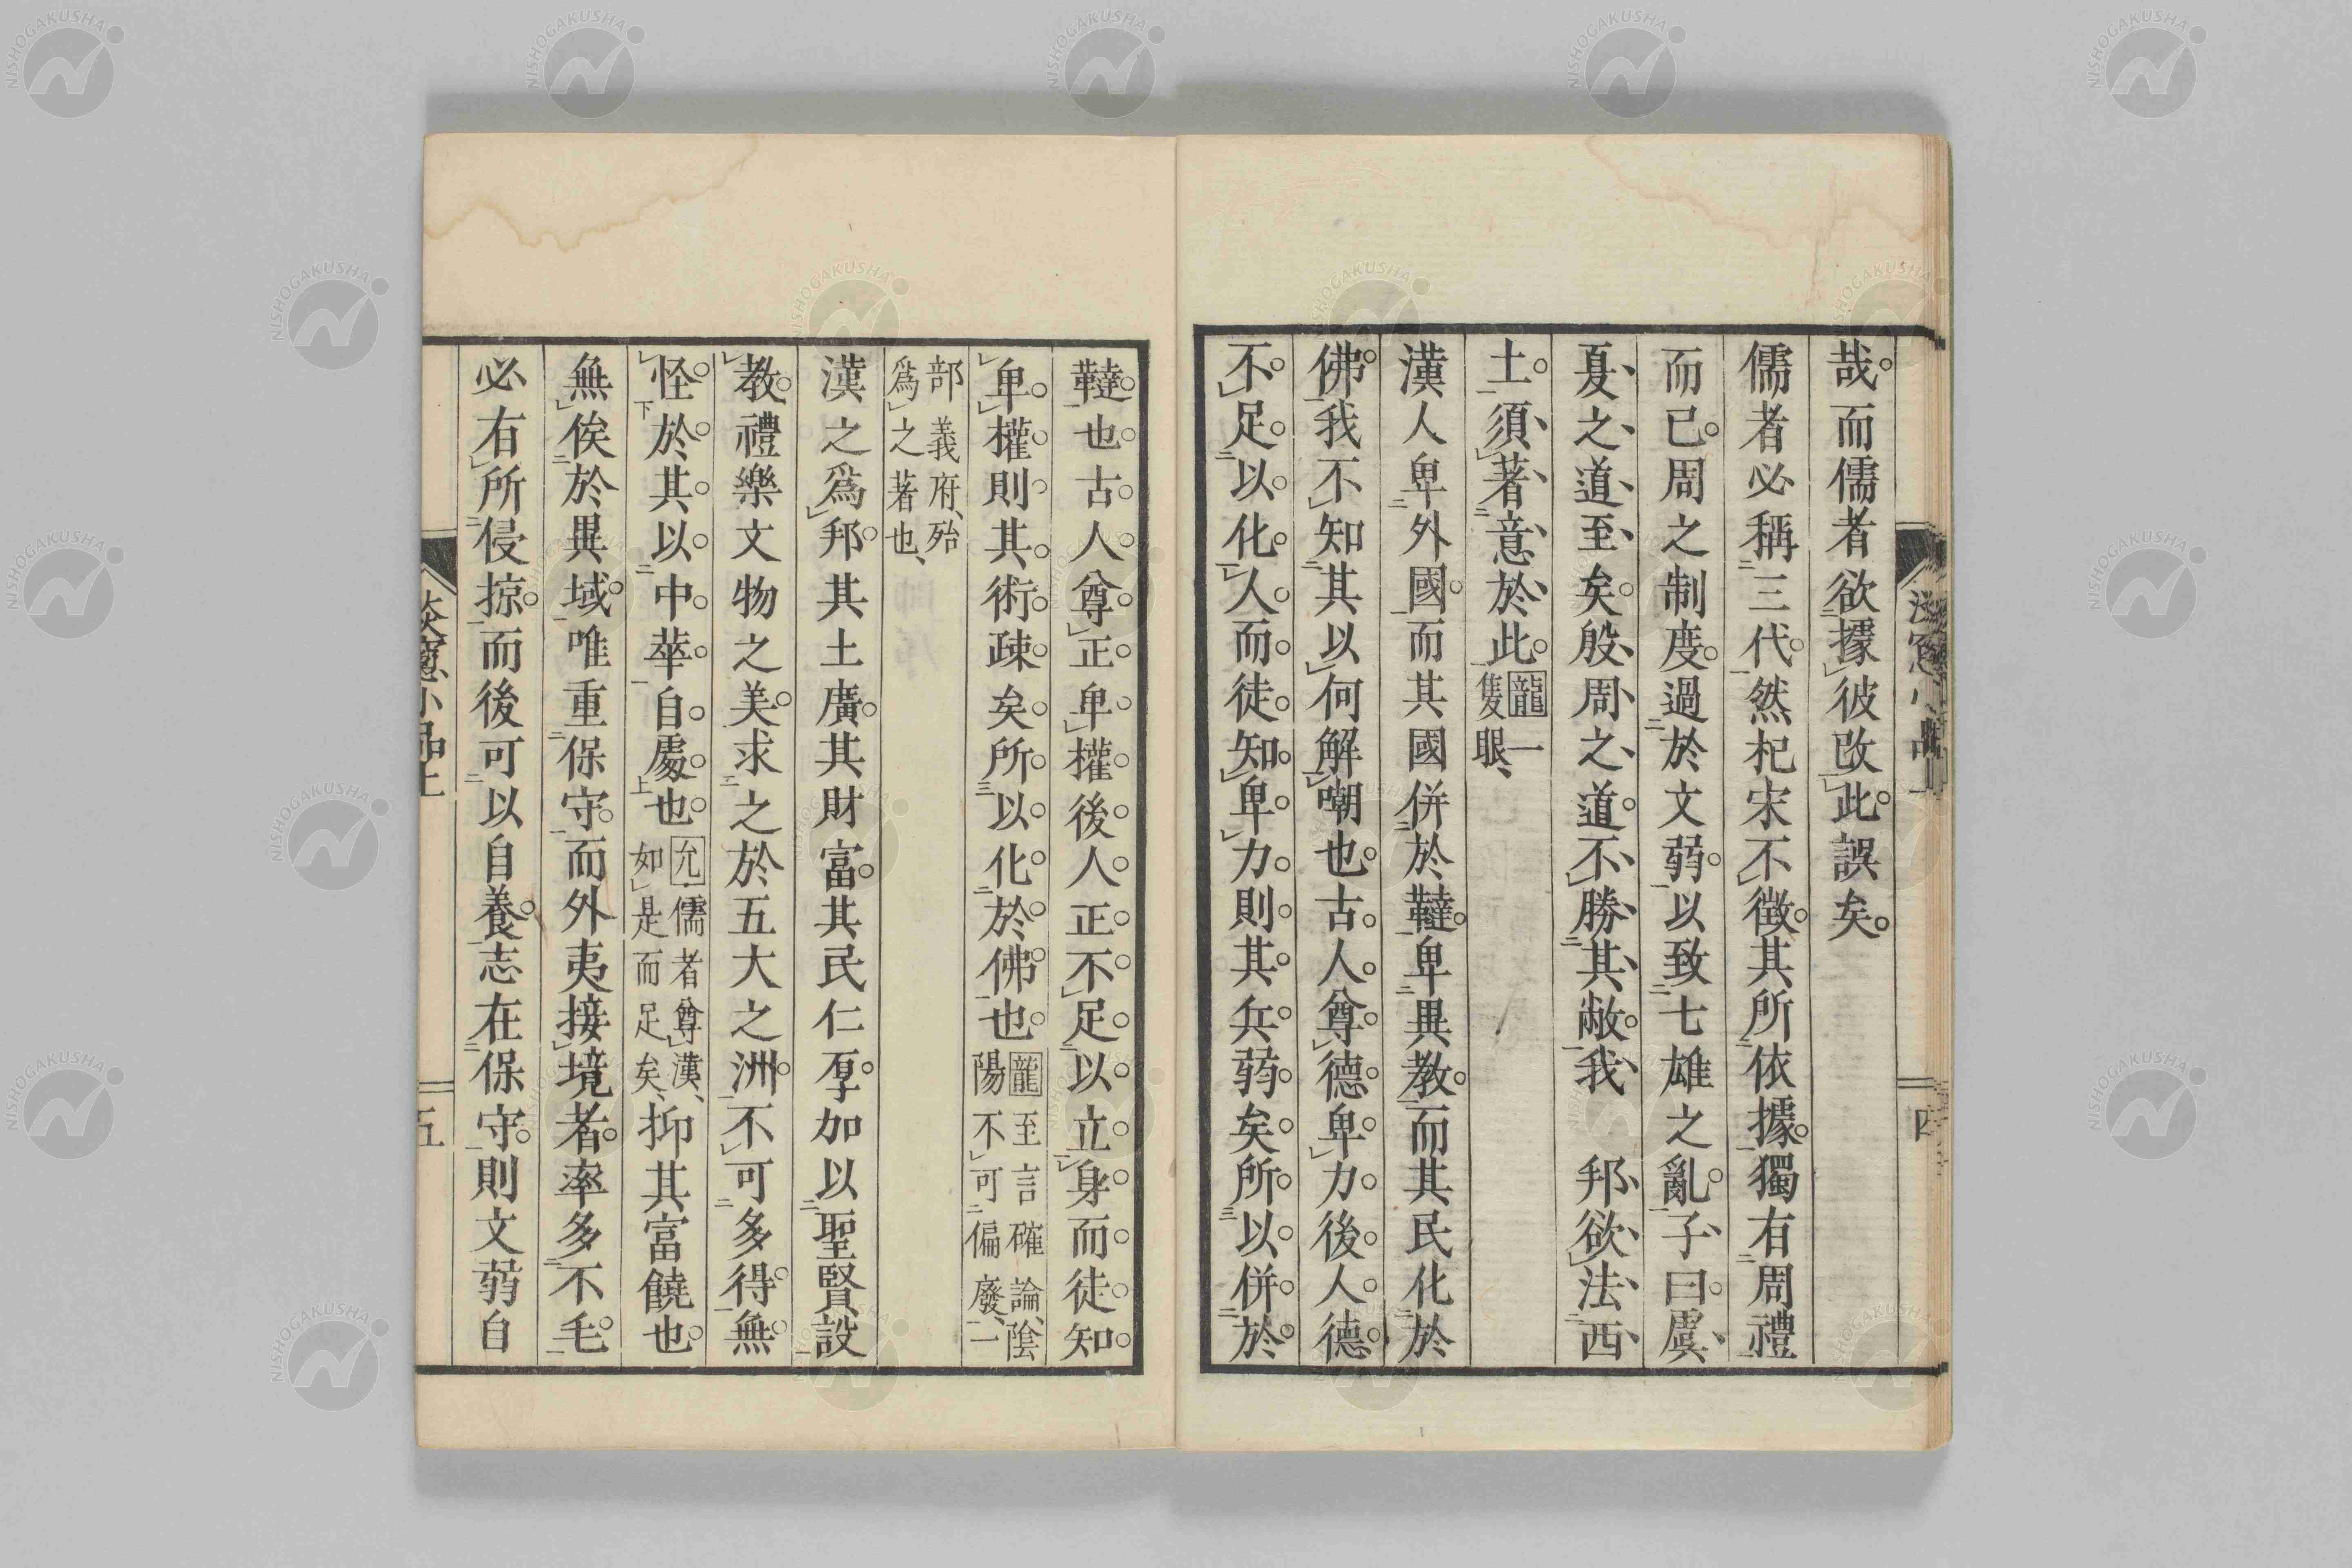 哉而儒者欲據彼改此誤矣
儒者必稱三代然杞宋不徵其所依據獨有周禮
而已周之制度過於文弱以致七雄之亂子曰虞
夏之道至矣殷周之道不勝其敝我 邦欲法西
土須著意於此龍一隻眼
漢人卑外國而其國併於韃卑異教而其民化於
佛我不知其以何解嘲也古人尊德卑力後人德
不足以化人而徒知卑力則其兵弱矣所以併於
韃也古人尊正卑權後人正不足以立身而徒知
卑權則其術疎矣所以化於佛也龍至言確論陰陽不可偏廢一
部義府殆爲之著也
漢之爲邦其土廣其財富其民仁厚加以聖賢設
教禮樂文物之美求之於五大之洲不可多得無
怪於其以中華自處也允儒者尊漢如是而足矣抑其富饒也
無俟於異域唯重保守而外夷接境者率多不毛
必有所侵掠而後可以自養志在保守則文弱自
窻小品上
五
四
NISHOGAKUSHA